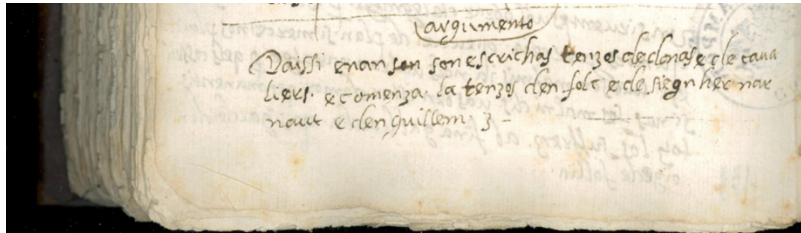 argumento
Daissi enan son son escrichas tenzos de donas e de caua
liers. e comenza la tenzos den folc e de Segnher nar
naut e den guillem